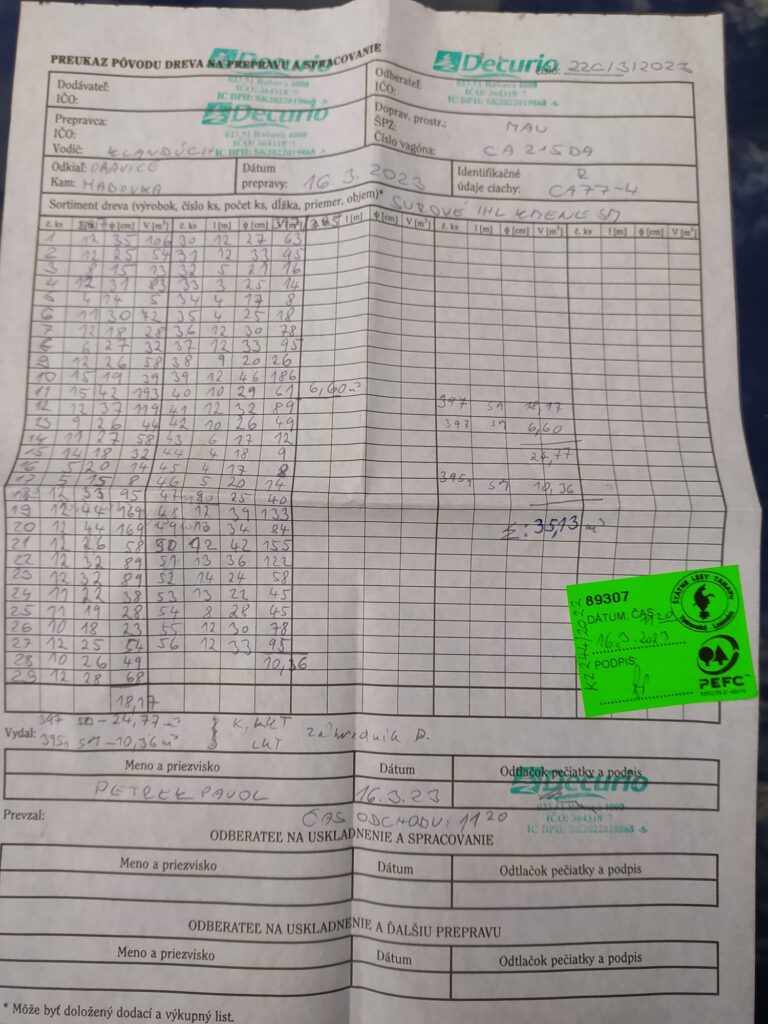 PREUKAZ PÔVODU DREVA NA PREPRAVU A SPRACOVANIE
Decurio
Decurio
22C/3/2023
Dodávateľ:
IČO:
023 51 Rabová 4000
IČ DPH: SK2022019868
Odberateľ:
IČO:
IČ DPH: SK2022019868
Prepravca:
IČO:
Vodič:
Decurio
023 51 Rabová 4000
Doprav. prostr.: MAN
ŠPZ:
Číslo vagóna: CA 215DA
Odkiaľ: ORAVICE
Kam: HABOVKA
Dátum
prepravy: 16. 3. 2023
Identifikačné R
údaje ciachy: CA77-4
Sortiment dreva (výrobok, číslo ks, počet ks, dĺžka, priemer, objem)* SUROVÉ IHL KMENE SM
č. ks ϕ [cm] V [m³] č. ks l [m] ϕ [cm] l [m] ϕ [cm] V [m³] č. ks l [m] ϕ [cm] V [m³] č. ks l [m] ϕ [cm] V [m³]
1 12 35 106 30 12 27 63
2 12 25 54 31 12 33 95
3 8 15 13 32 5 21 16
4 12 31 83 33 3 25 14
5 4 14 5 34 4 17 8
6 11 30 72 35 4 25 18
7 12 18 28 36 12 30 78
8 6 27 32 37 12 33 95
9 12 26 58 38 9 20 26
10 15 19 39 39 12 46 186
11 15 42 193 40 10 29 61 6,60 m³
12 12 37 119 41 12 32 89 397 SM 18,17
13 9 26 44 42 10 26 49 397 SM 6,60
14 11 27 58 43 6 17 12
15 14 18 32 44 4 18 9 24,77
16 5 20 14 45 4 17 8
17 5 15 8 46 5 20 14 3951 SM 10,36
18 12 33 95 47 25 40
19 12 44 169 48 12 39 133
20 12 44 169 49 10 34 84 Σ: 35,13 m³
21 12 26 58 50 12 42 155
22 12 32 89 51 13 36 122
23 12 32 89 52 14 24 58
24 11 22 38 53 13 22 45
25 11 19 28 54 8 28 45
26 10 18 23 55 12 30 78
27 12 25 54 56 12 33 95
28 10 26 49 10,36
29 12 28 68
18,17
89307
DÁTUM: ČAS:
16.3.2023
PODPIS
KZ 244/2022
ŠTÁTNE LESY TANAPU
PEFC
Vydal: 397 SM - 24,77 m³
3951 SM - 10,36 m³ LKT
Meno a priezvisko Dátum Odtlačok pečiatky a podpis
PETREK PAVOL 16.3.23
Decurio
023 51 Rabová 4000
IČ DPH: SK2022019868
Prevzal: ČAS ODCHODU: 11 20
ODBERATEĽ NA USKLADNENIE A SPRACOVANIE
Meno a priezvisko Dátum Odtlačok pečiatky a podpis
ODBERATEĽ NA USKLADNENIE A ĎALŠIU PREPRAVU
Meno a priezvisko Dátum Odtlačok pečiatky a podpis
* Môže byť doložený dodací a výkupný list.